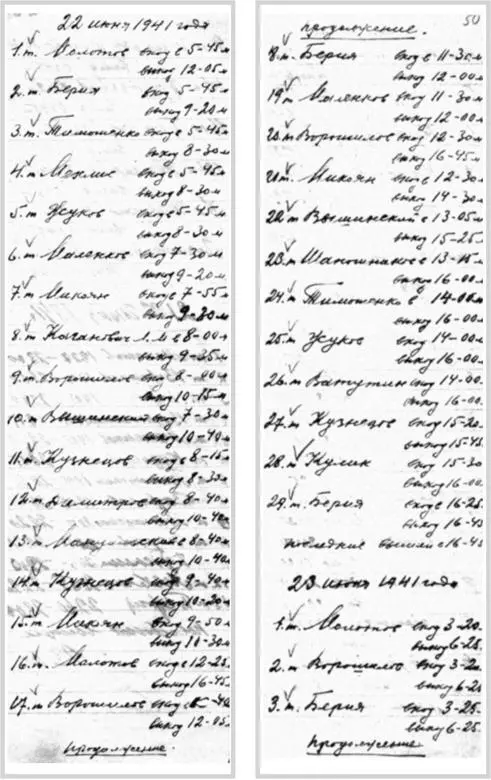 22 июня 1941 года
1. т. Молотов вход в 5-45 м
выход 12-05 м
2. т. Берия вход 5-45 м
выход 9-20 м
3. т. Тимошенко вход в 5-45 м
выход 8-30 м
4. т. Мехлис вход в 5-45 м
выход 8-30 м
5. т. Жуков вход в 5-45 м
выход 8-30 м
6. т. Маленков вход 7-30 м
выход 9-20 м
7. т. Микоян вход в 7-55 м
выход 9-30 м
8. т. Каганович Л. М в 8-00 м
выход 9-35 м
9. т. Ворошилов вход 8-00 м
выход 10-15 м
10. т Вышинский вход 7-30 м
выход 10-40 м
11. т. Кузнецов вход в 8-15 м
выход 8-30 м
12. т Димитров вход 8-40 м
выход 10-40 м
13. т. Мануильский в 8-40 м
выход 10-40 м
14. т Кузнецов вход 9-40 м
выход 10-20 м
15. т. Микоян вход 9-50 м
выход 10-30 м
16. т. Молотов вход в 12-25 м
выход 16-45 м
17. т Ворошилов вход в
выход 12-05 м
продолжение.
50
продолжение.
8. т. Берия вход в 11-30 м
выход 12-00 м
19 т Маленков вход 11-30 м
выход 12-00 м
20. т Ворошилов вход 12-30 м
выход 16-45 м
21. т. Микоян вход в 12-30 м
выход 14-30 м
22. т Вышинский в 13-05 м
выход 15-25 м
23. т Шапошников в 13-15 м
выход 16-00 м
24. т. Тимошенко в 14-00 м
выход 16-00 м
25. т Жуков вход 14-00 м
выход 16-00 м
26. т Ватутин вход 14-00
выход 16-00
27. т Кузнецов вход 15-20
выход 15-45
28. т Кулик вход 15-30
выход 16-00
29. т. Берия вход в 16-25
выход 16-45
последние вышли в 16-45
23 июня 1941 года
1. т. Молотов вход 3-20
выход 6-25
2. т Ворошилов вход 3-20
выход 6-25
3. т. Берия вход 3-25
выход 6-25
продолжение